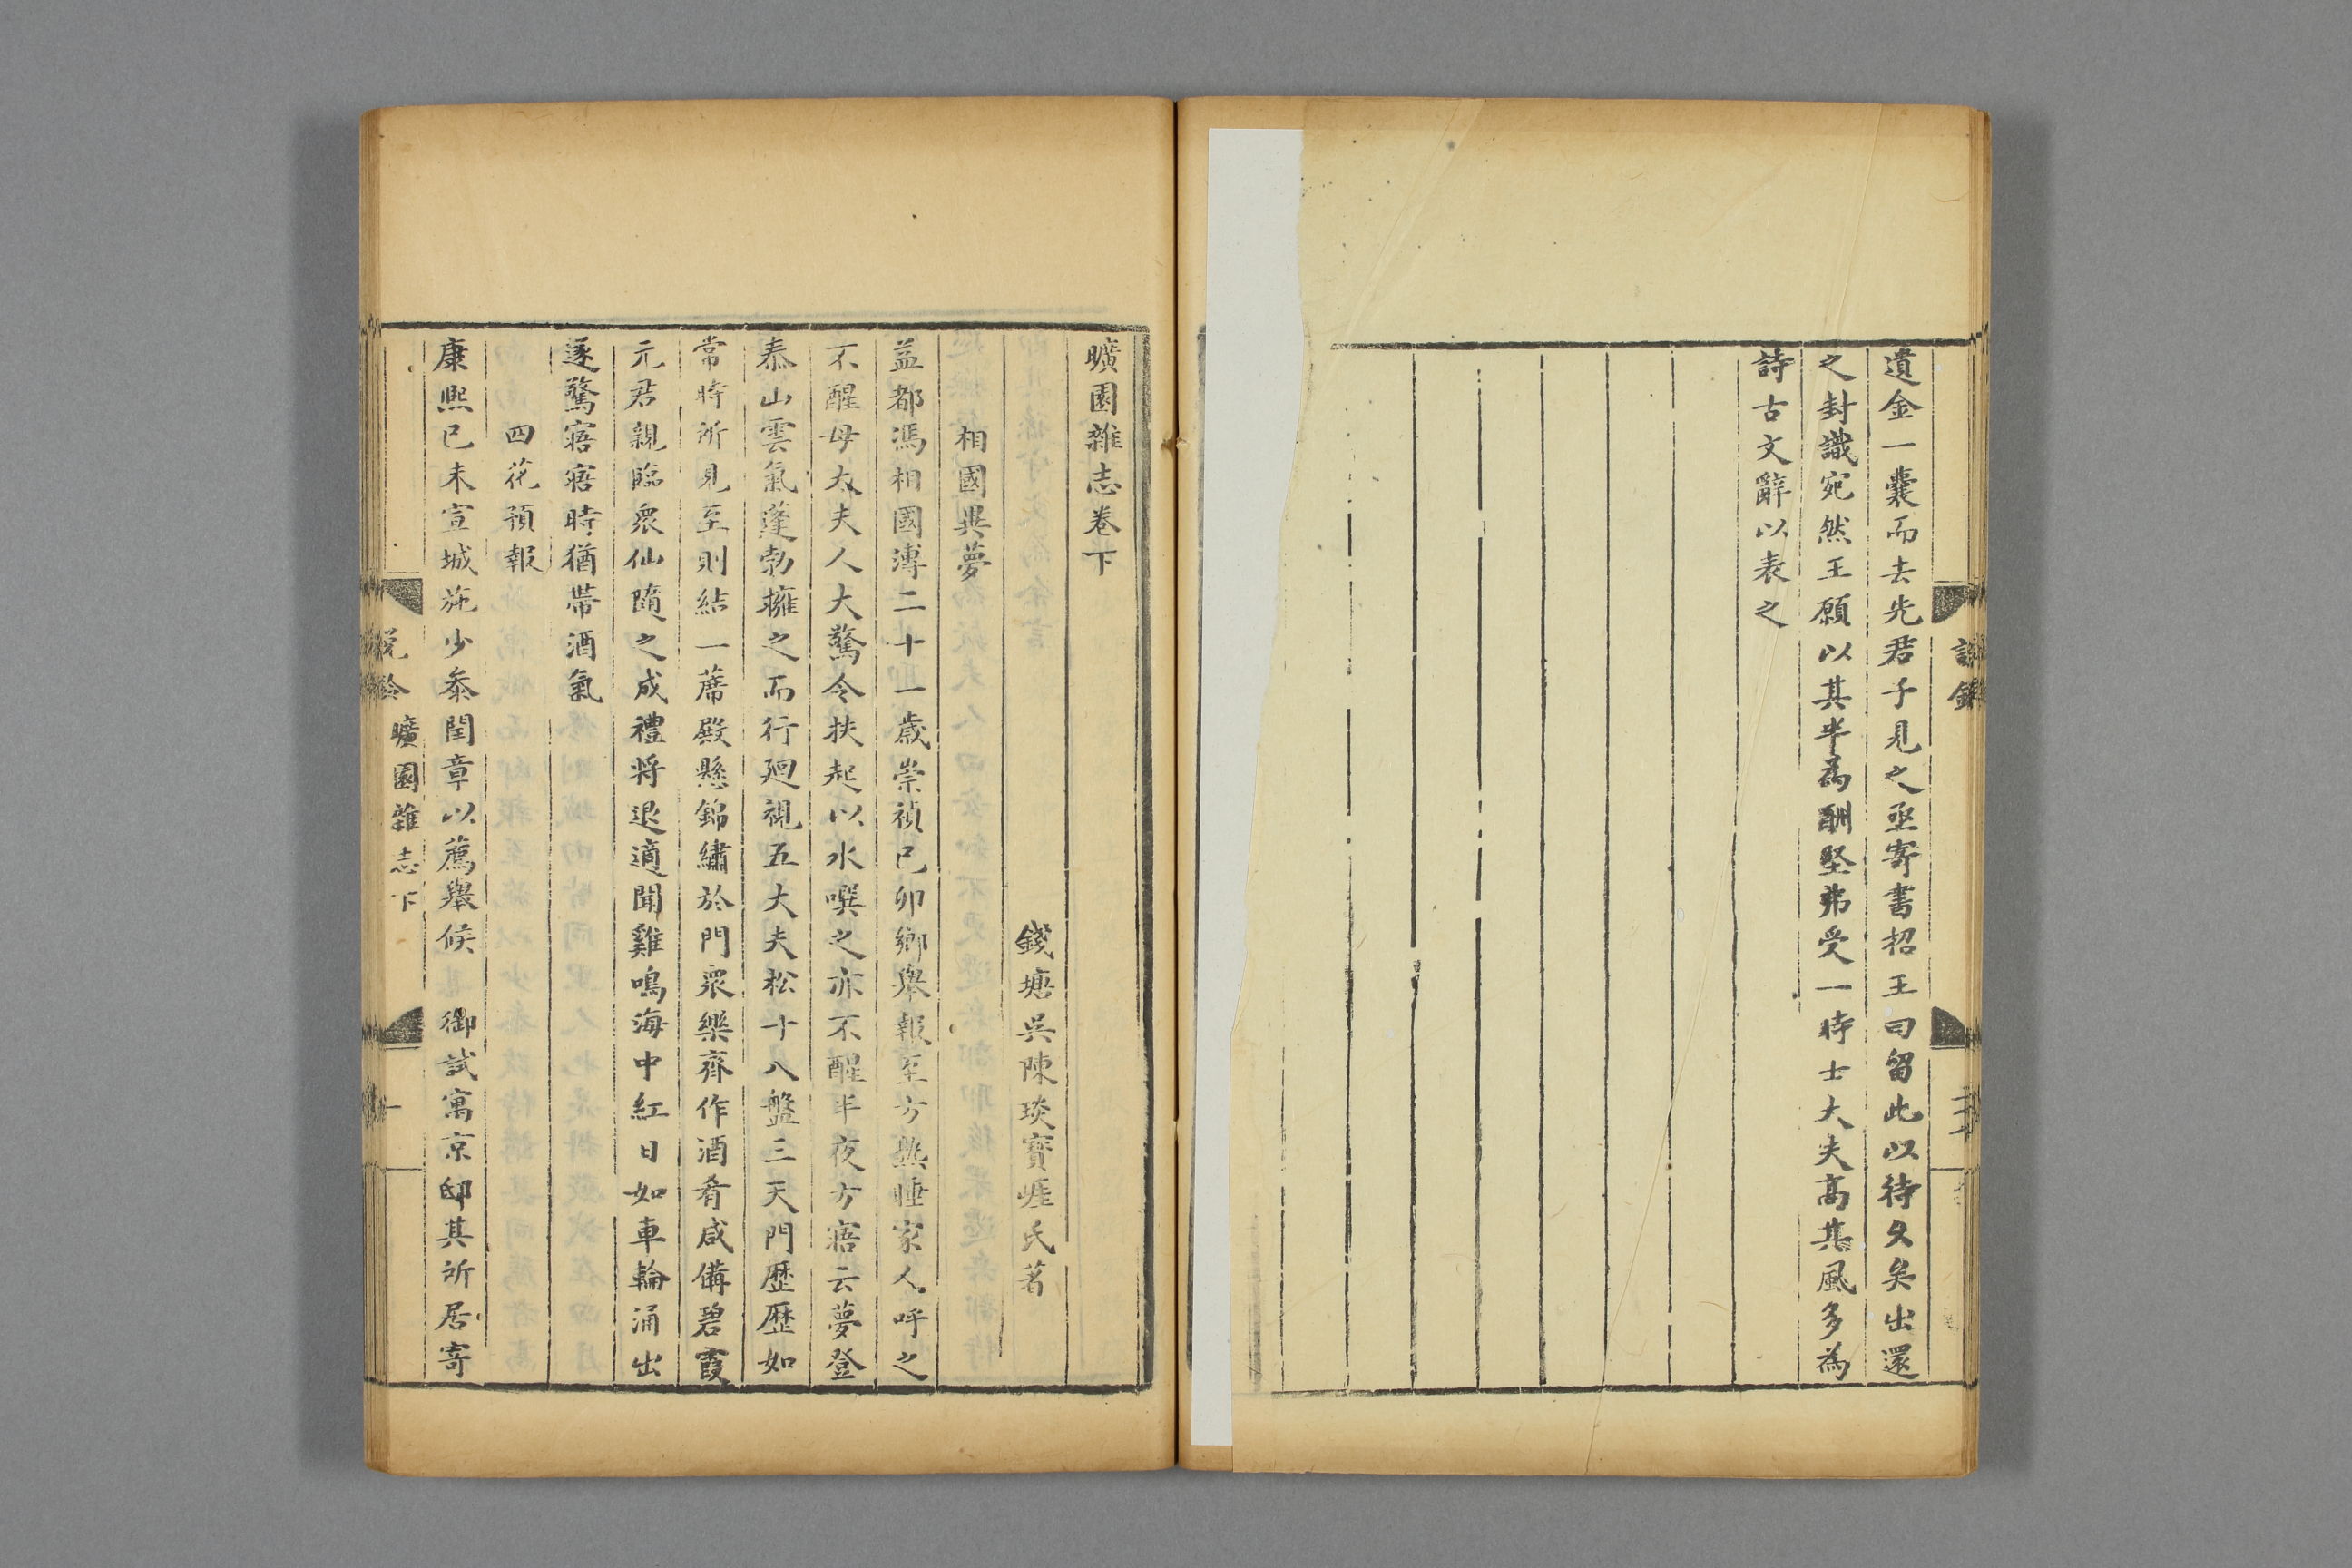 遺金一囊而去先君子見之亟寄書招王曰留此以待久矣出還
之封識宛然王願以其半為酬堅弗受一時士大夫高其風多為
詩古文辭以表之
曠園雜志卷下
錢塘吳陳琰寶崖氏著
相國異夢
益都馮相國溥二十一歲崇禎己卯鄉舉報至方熟睡家人呼之
不醒母太夫人大驚令扶起以水噀之亦不醒半夜方寤云夢登
泰山雲氣蓬勃擁之而行廻視五大夫松十八盤三天門歷歷如
常時所見至則結一蓆殿懸錦繡於門衆樂齊作酒肴咸備碧霞
元君親臨衆仙隨之成禮將退適聞雞鳴海中紅日如車輪涌出
遂驚寤寤時猶帶酒氣
四花預報
康熙己未宣城施少叅閏章以薦舉候　御試寓京邸其所居寄
說鈴　曠園雜志下　一